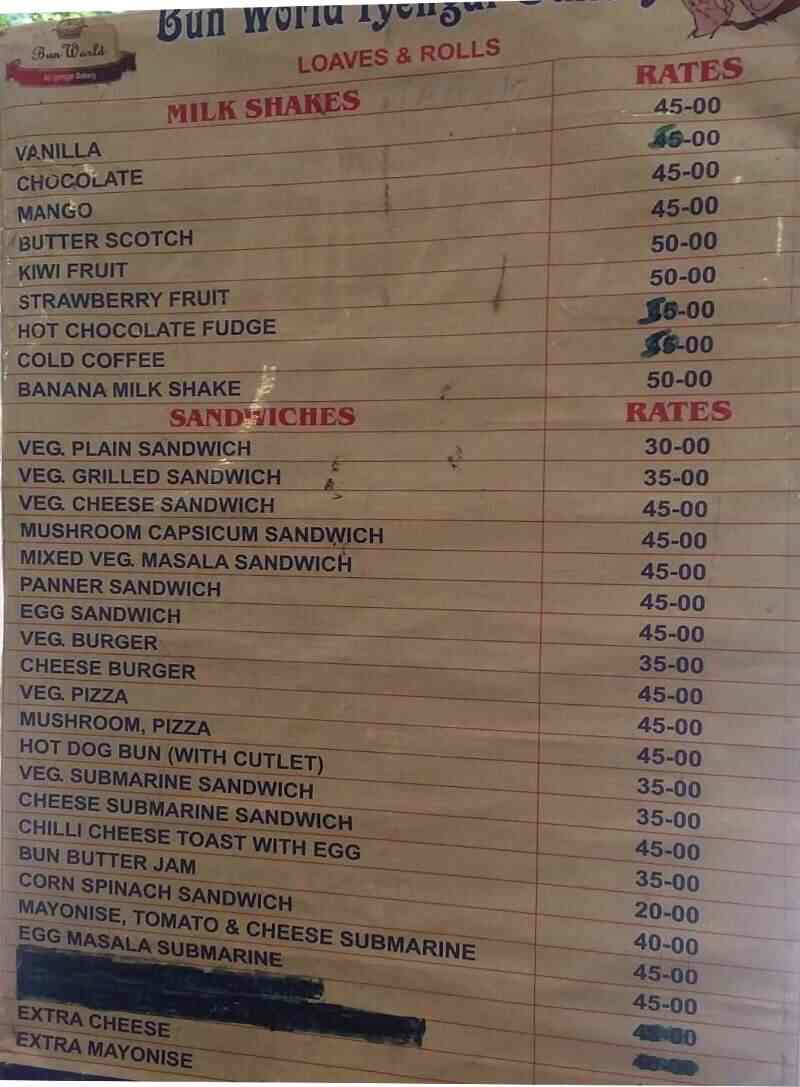 Bun World Iyengar
Bun World
An Iyengar Bakery
LOAVES & ROLLS
MILK SHAKES RATES
VANILLA 45-00
CHOCOLATE
MANGO 45-00
BUTTER SCOTCH 45-00
KIWI FRUIT 50-00
STRAWBERRY FRUIT 50-00
HOT CHOCOLATE FUDGE
COLD COFFEE
BANANA MILK SHAKE 50-00
SANDWICHES RATES
VEG. PLAIN SANDWICH 30-00
VEG. GRILLED SANDWICH 35-00
VEG. CHEESE SANDWICH 45-00
MUSHROOM CAPSICUM SANDWICH 45-00
MIXED VEG. MASALA SANDWICH 45-00
PANNER SANDWICH 45-00
EGG SANDWICH 45-00
VEG. BURGER 35-00
CHEESE BURGER 45-00
VEG. PIZZA 45-00
MUSHROOM, PIZZA 45-00
HOT DOG BUN (WITH CUTLET) 35-00
VEG. SUBMARINE SANDWICH 35-00
CHEESE SUBMARINE SANDWICH 45-00
CHILLI CHEESE TOAST WITH EGG 35-00
BUN BUTTER JAM 20-00
CORN SPINACH SANDWICH 40-00
MAYONISE, TOMATO & CHEESE SUBMARINE 45-00
EGG MASALA SUBMARINE 45-00
EXTRA CHEESE
EXTRA MAYONISE